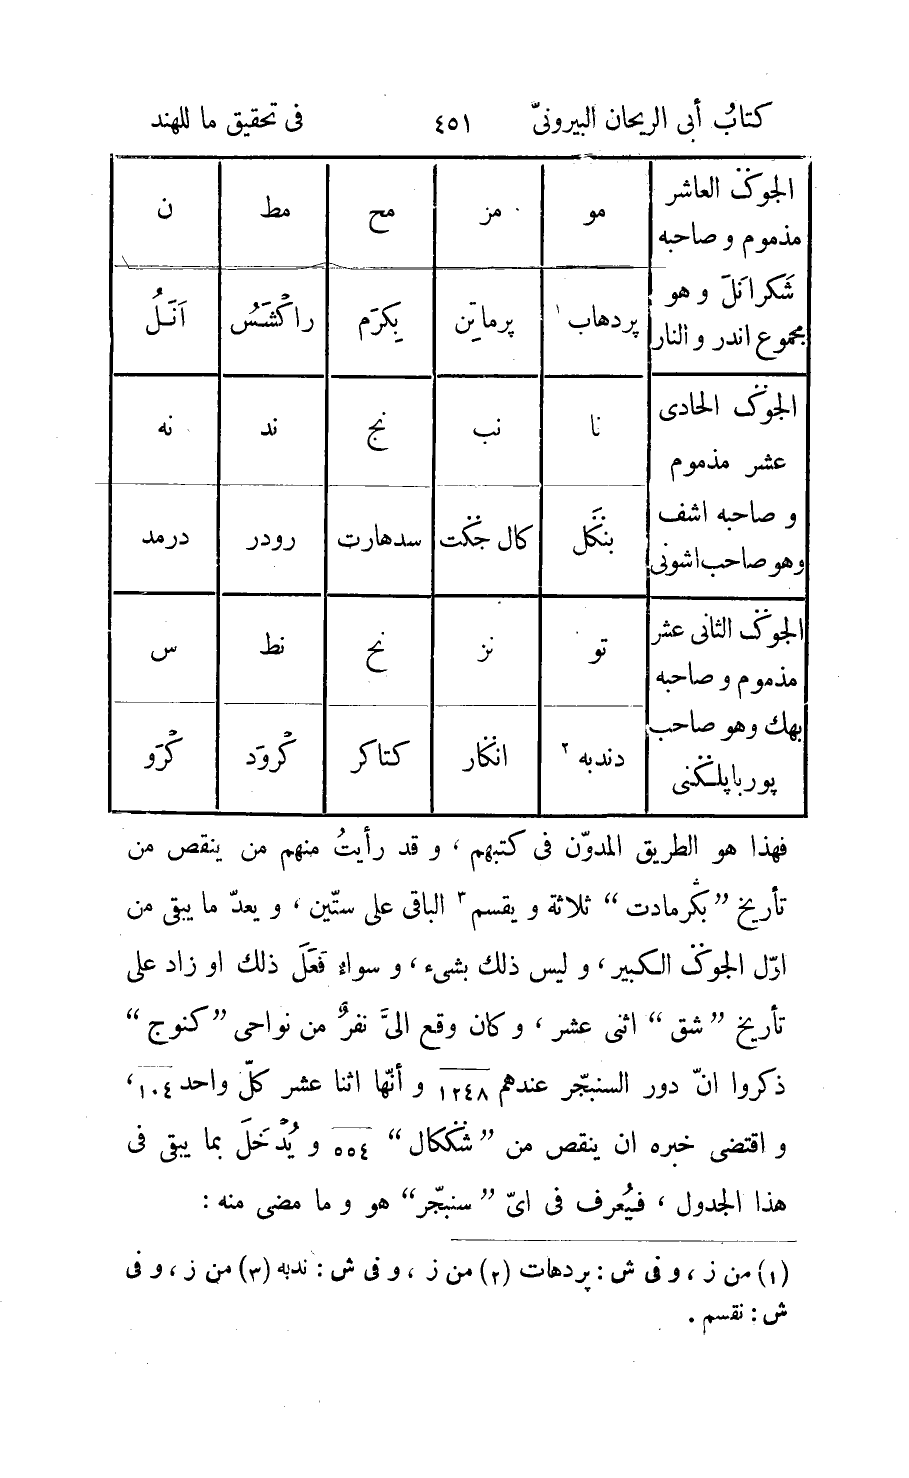 كتابُ أبى الريحان البيرونىّ ٤٥١ فى تحقيق ما للهند
الجوݣ العاشر مو مز مح مط ن
مذموم و صاحبه
شَكرانَلَ و هو پردهاب ١ پرماتِن بِكرَم راكْشَسُ اَنَلُ
مجموع اندر و النار
الجوݣ الحادى نا نب نج ند نه
عشر مذموم
و صاحبه اشف بنݣَل كال جݣت سدهارت رودر درمد
وهو صاحب اشونى
الجوݣ الثانى عشر تو نز نح نط س
مذموم و صاحبه
بهك وهو صاحب دندبه ٢ انݣار كتاكر كْروَد كْرَو
پورباپلݣنى
فهذا هو الطريق المدوّن فى كتبهم ، و قد رأيتُ منهم من ينقص من
تأريخ ”بكرمادت“ ثلاثة و يقسم ٣ الباقى على ستّين ، و يعدّ ما يبقى من
اوّل الجوݣ الكبير ، و ليس ذلك بشىء ، و سواء فَعَلَ ذلك او زاد على
تأريخ ”شق“ اثنى عشر ، و كان وقع الىَّ نفرٌ من نواحى ”كنوج“
ذكروا انّ دور السنبجّر عندهم ١٢٤٨ و أنّها اثنا عشر كلّ واحد ١٠٤ ،
و اقتضى خبره ان ينقص من ”شݣكال“ ٥٥٤ و يُدْخَلَ بما يبقى فى
هذا الجدول ، فيُعرف فى اىّ ”سنبجّر“ هو و ما مضى منه :
(١) من ز ، و فى ش : پردهات (٢) من ز ، و فى ش : ندبه (٣) من ز ، و فى
ش : نقسم .